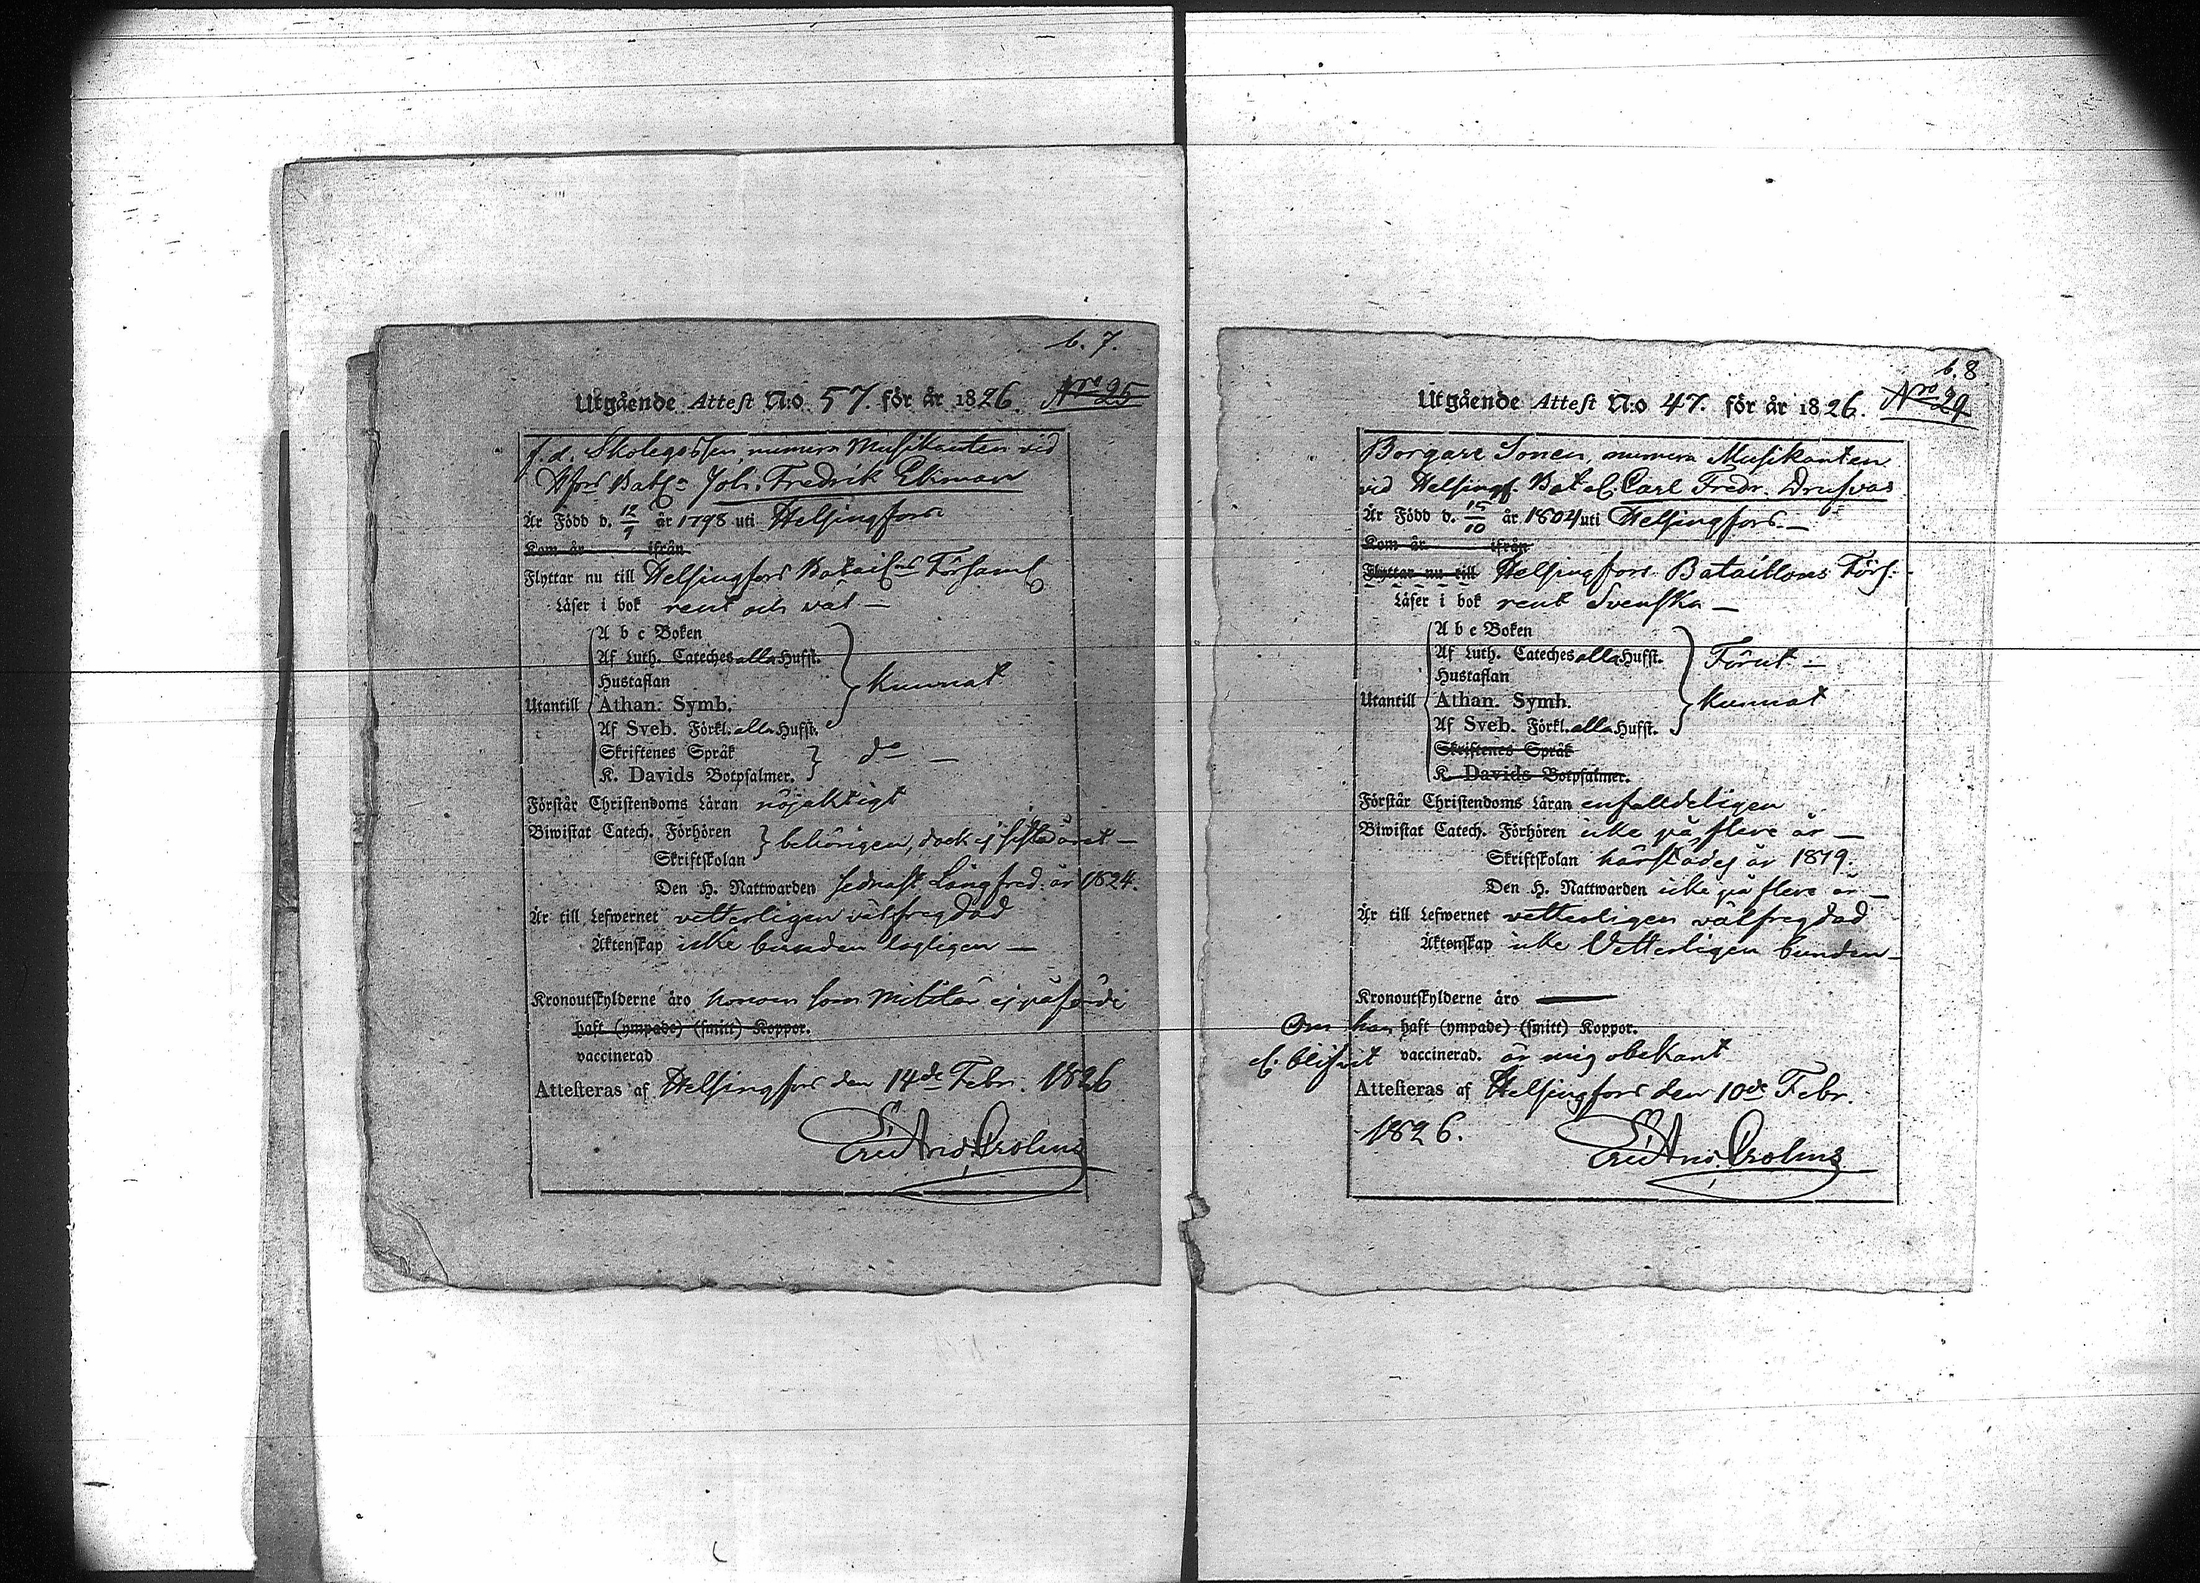 b. 7.
Utgående Attest N:o 57. för år 1826. Nro 25
f. d. Skolegossen, numera Musikanten vid
Hfors Batln Joh. Fredrik Ekman
Är Född d. 12/9 år 1798 uti Helsingfors
Kom år ifrån
Flyttar nu till Helsingfors Batailns Församl
Läser i bok rent och väl —
A b c Boken
Af Luth. Cateches alla Hufst.
Hustaflan
Utantill Athan. Symb. Kunnat
Af Sveb. Förkl. alla Hufst.
Skriftenes Språk
K. Davids Botpsalmer. do —
Förstår Christendoms Läran nöjaktigt
Biwistat Catech. Förhören behörigen, dock ej sista året —
Skriftskolan
Den H. Nattwarden sednast Långfred: år 1824.
Är till Lefwernet vetterligen välfregdad
Äktenskap icke bunden lagligen —
Kronoutskylderne äro honom som Militär ej påförde
haft (ympade) (smitt) Koppor.
vaccinerad
Attesteras af Helsingfors den 14de Febr. 1826
Crolius
b. 8
Utgående Attest N:o 47. för år 1826. Nro 29
Borgare Sonen, numera Musikanten
vid Helsingf. Batal. Carl Fredr. Drusvas
Är Född d. 15/10 år 1804 uti Helsingfors. —
Kom år ifrån
Flyttar nu till Helsingfors Bataillons Förs:
Läser i bok rent Svenska —
A b c Boken
Af Luth. Cateches alla Hufst. Förut —
Hustaflan
Utantill Athan. Symb. Kunnat
Af Sveb. Förkl. alla Hufst.
Skriftenes Språk
K. Davids Botpsalmer.
Förstår Christendoms Läran enfalldeligen
Biwistat Catech. Förhören icke på flere år —
Skriftskolan härstädes år 1819.
Den H. Nattwarden icke på flere år —
Är till Lefwernet vetterligen välfregdad
Äktenskap icke Vetterligen bunden —
Kronoutskylderne äro —
Om han haft (ympade) (smitt) Koppor.
el. blifvit vaccinerad. är mig obekant
Attesteras af Helsingfors den 10de Febr.
1826.
Crolius